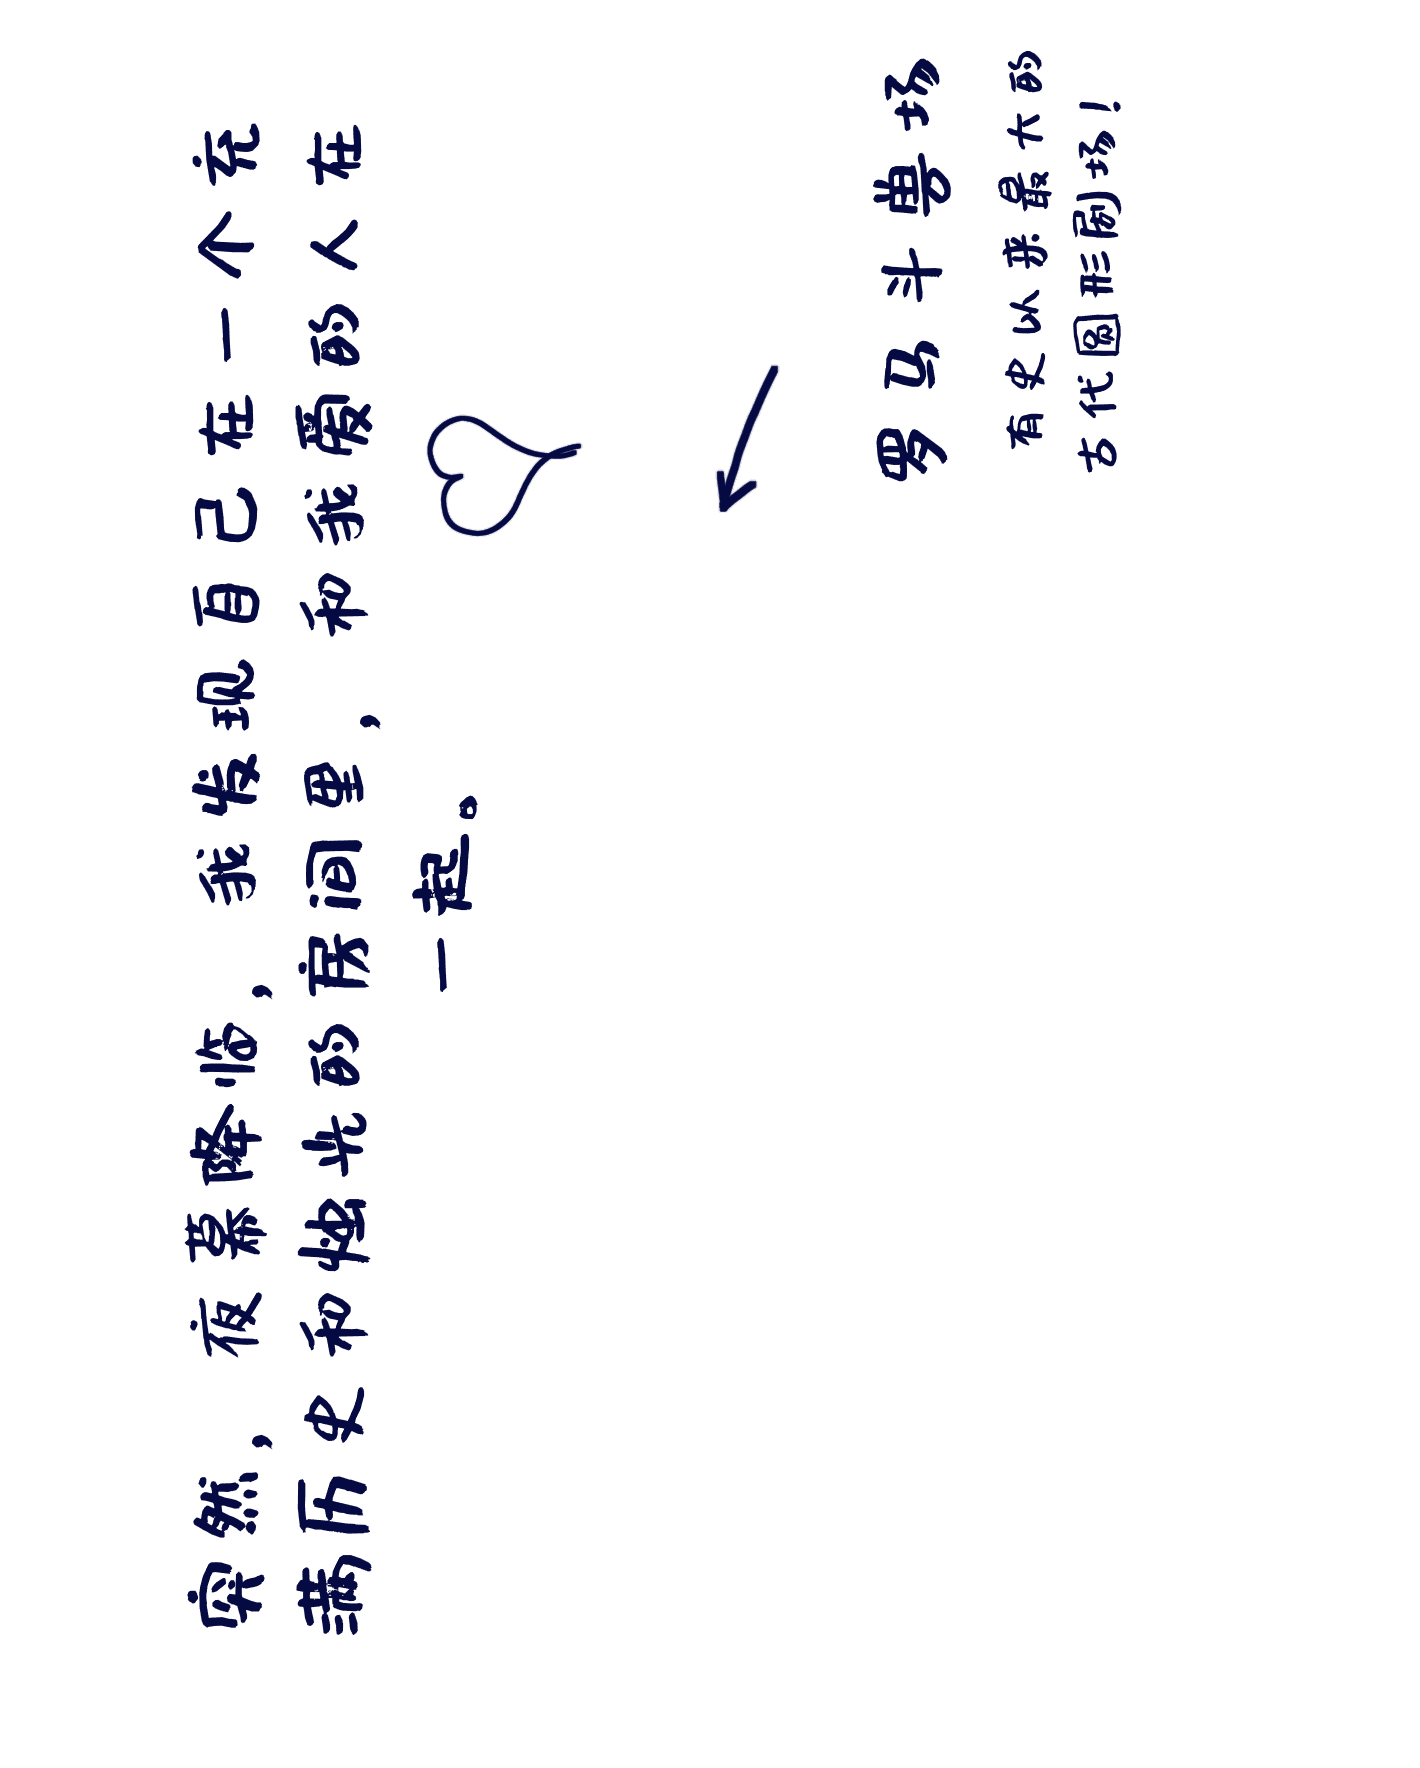 突然，夜幕降临，我发现自己在一个充
满历史和烛光的房间里，和我爱的人在
一起。
罗马斗兽场
有史以来最大的
古代圆形剧场！